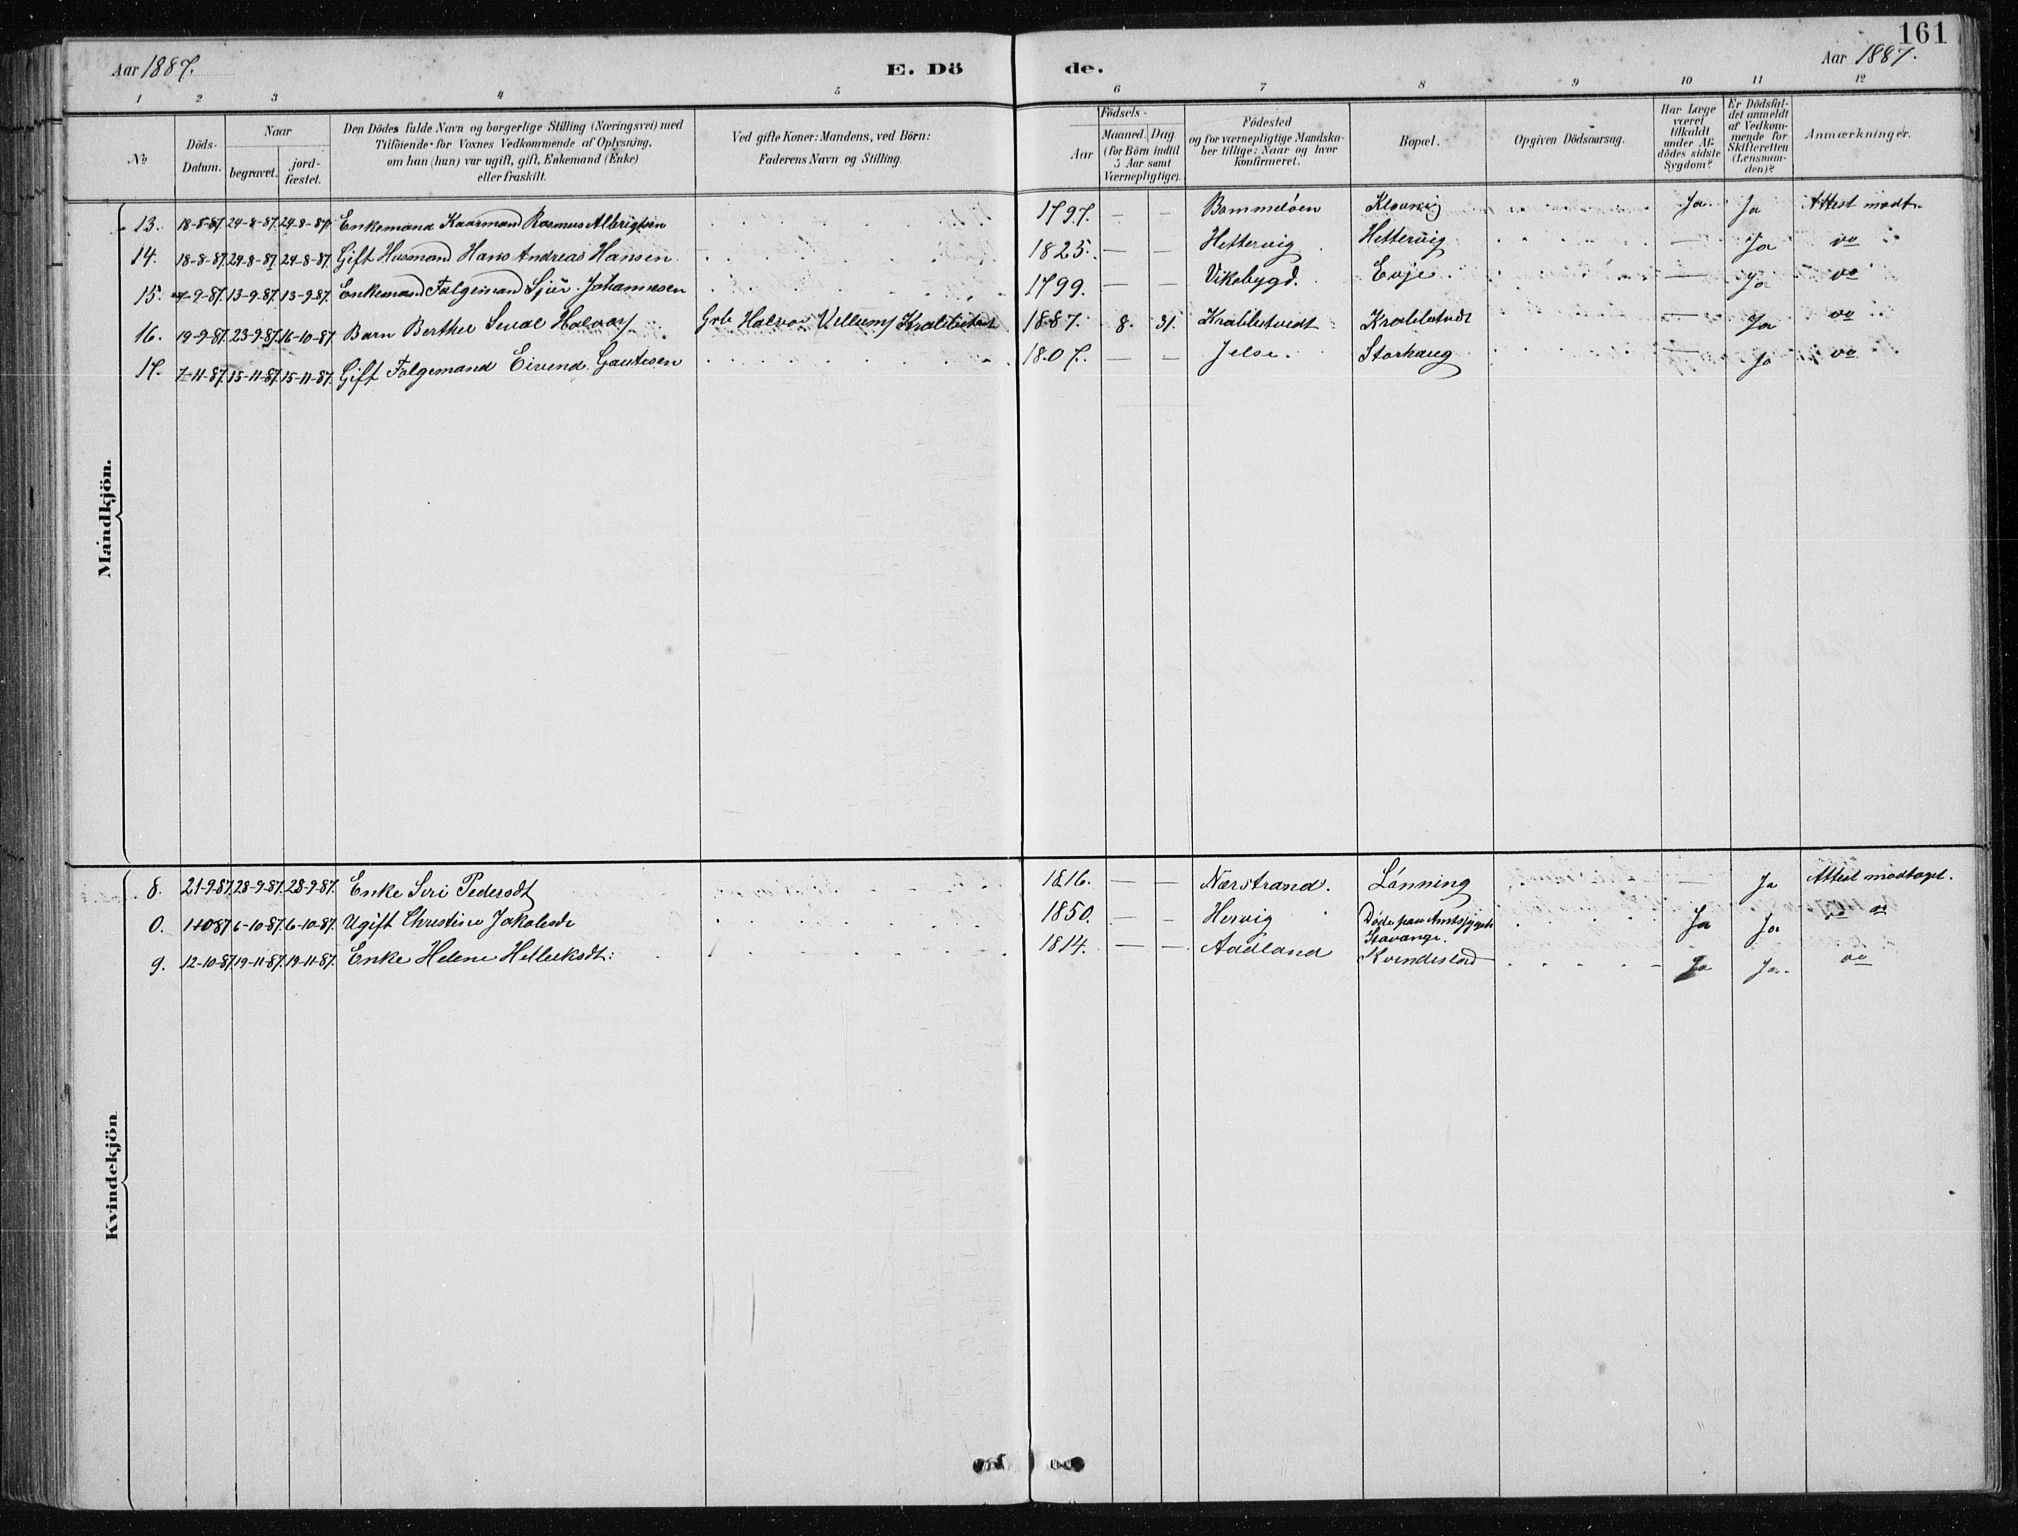 161
Aar 1887.
E. Dö
de.
Aar 1887.
1 2 3 4 5 6 7 8 9 10 11 12
No
Döds-Datum.
Naar
begravet.
jord-fæstet.
Den Dödes fulde Navn og borgerlige Stilling (Næringsvei) med
Tilföiende for Voxnes Vedkommende af Oplysning,
om han (hun) var ugift, gift, Enkemand (Enke)
eller fraskilt.
Ved gifte Koner: Mandens, ved Börn:
Faderens Navn og Stilling.
Födsels-
Aar
Maaned. Dag
(for Börn indtil
5 Aar samt
Værnepligtige).
Födested
og for værnepligtige Mandska-
ber tillige: Naar og hvor
konfirmeret.
Bopæl.
Opgiven Dödsaarsag.
Har Læge
været
tilkaldt
under Af-
dödes sidste
Sygdom?
Er Dödsfal-
det anmeldt
af Vedkom-
mende for
Skifteretten
(Lensman-
den)?
Anmærkninger.
Mandkjön.
13. 18-8-87. 24-8-87. 24-8-87. Enkemand Kaarmand Rasmus Albrigtsen 1797. — — Bommeløen Klovnig Ja Ja Attest modt.
14. 18-8-87. 24-8-87. 24-8-87. Gift Husmand Hans Andreas Hansen 1825. — — Hettervig Hettervig — Ja do
15. 7-9-87. 13-9-87. 13-9-87. Enkemand Folgemand Sjur Johannesen 1799. — — Vikebygd. Evje — Ja do
16. 19-9-87. 23-9-87. 16-10-87. Barn Berthel Seval Halvors Grb Halvor Villums Krabbetvedt 1887. 8. 31. Krabbetvedt Krabbetvedt — Ja do
17. 7-11-87. 15-11-87. 15-11-87. Gift Folgemand Eivend Gautesen 1807. — — Jelse. Storhaug — Ja do
Kvindekjön
8. 21-9-87. 28-9-87. 28-9-87. Enke Siri Pedersdt 1816. — — Nærstrand. Lønning — Ja Attest modtaget.
0. 1-10-87 6-10-87. 6-10-87. Ugift Christine Jakobsdt 1850. — — Hervig Døde paa Amtssygeh Stavanger. Ja Ja do
9. 12-10-87. 19-11-87. 19-11-87. Enke Helene Hellieksdt: 1814. — — Aadland Kvindesland Ja Ja do